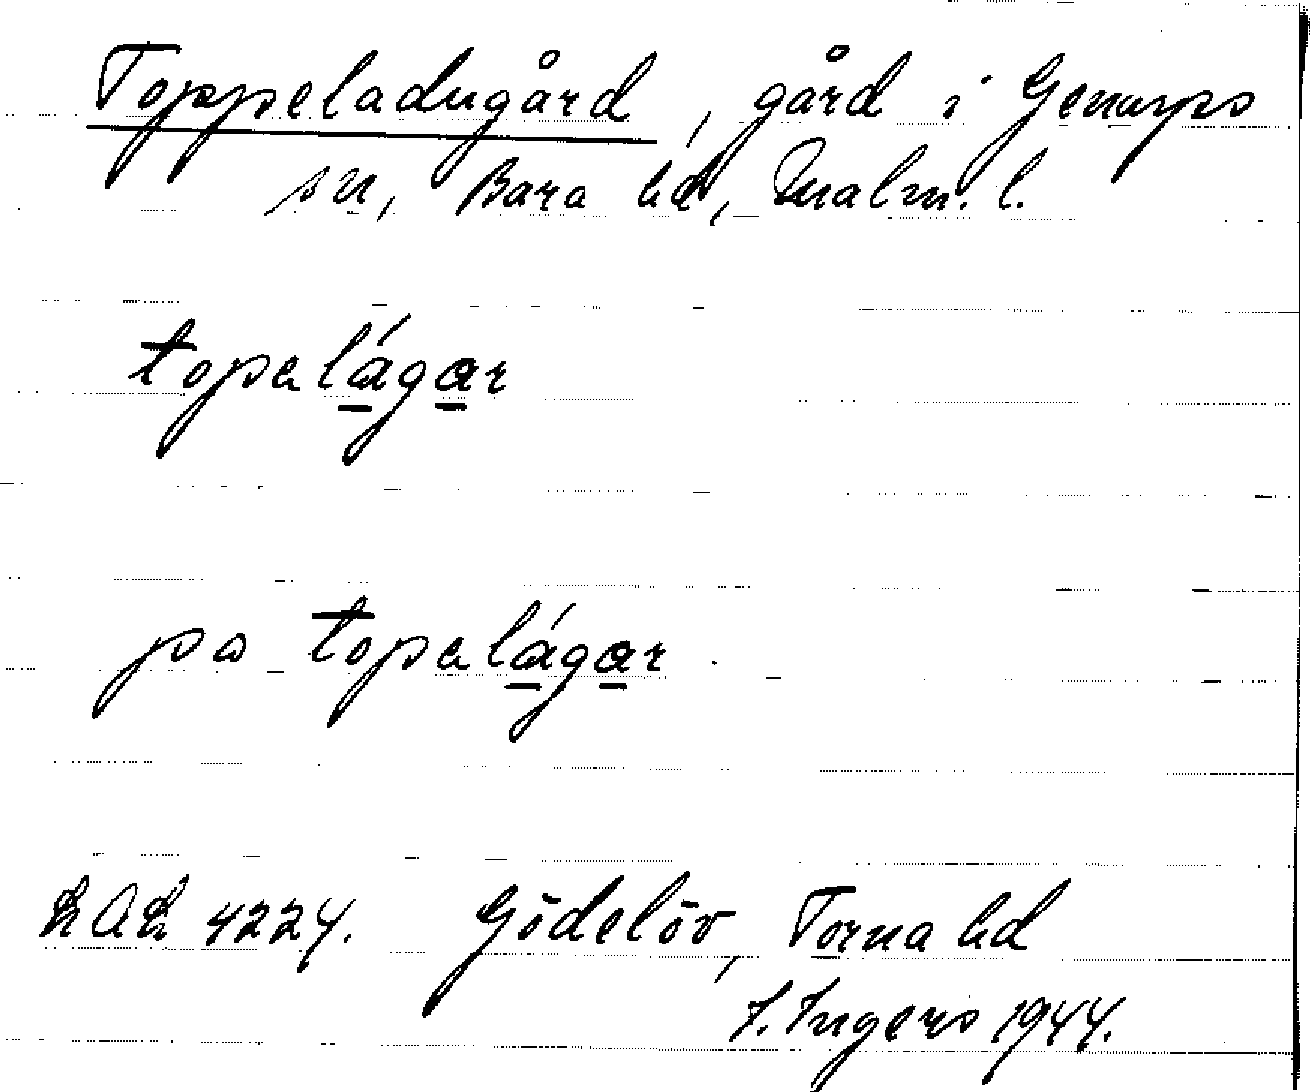 Toppeladugård, gård i Genarps
sn, Bara hd, Malm. l.
topalágar
pa topalágar
LAL 4224. Gödelöv, Torna hd
I. Ingers 1944.